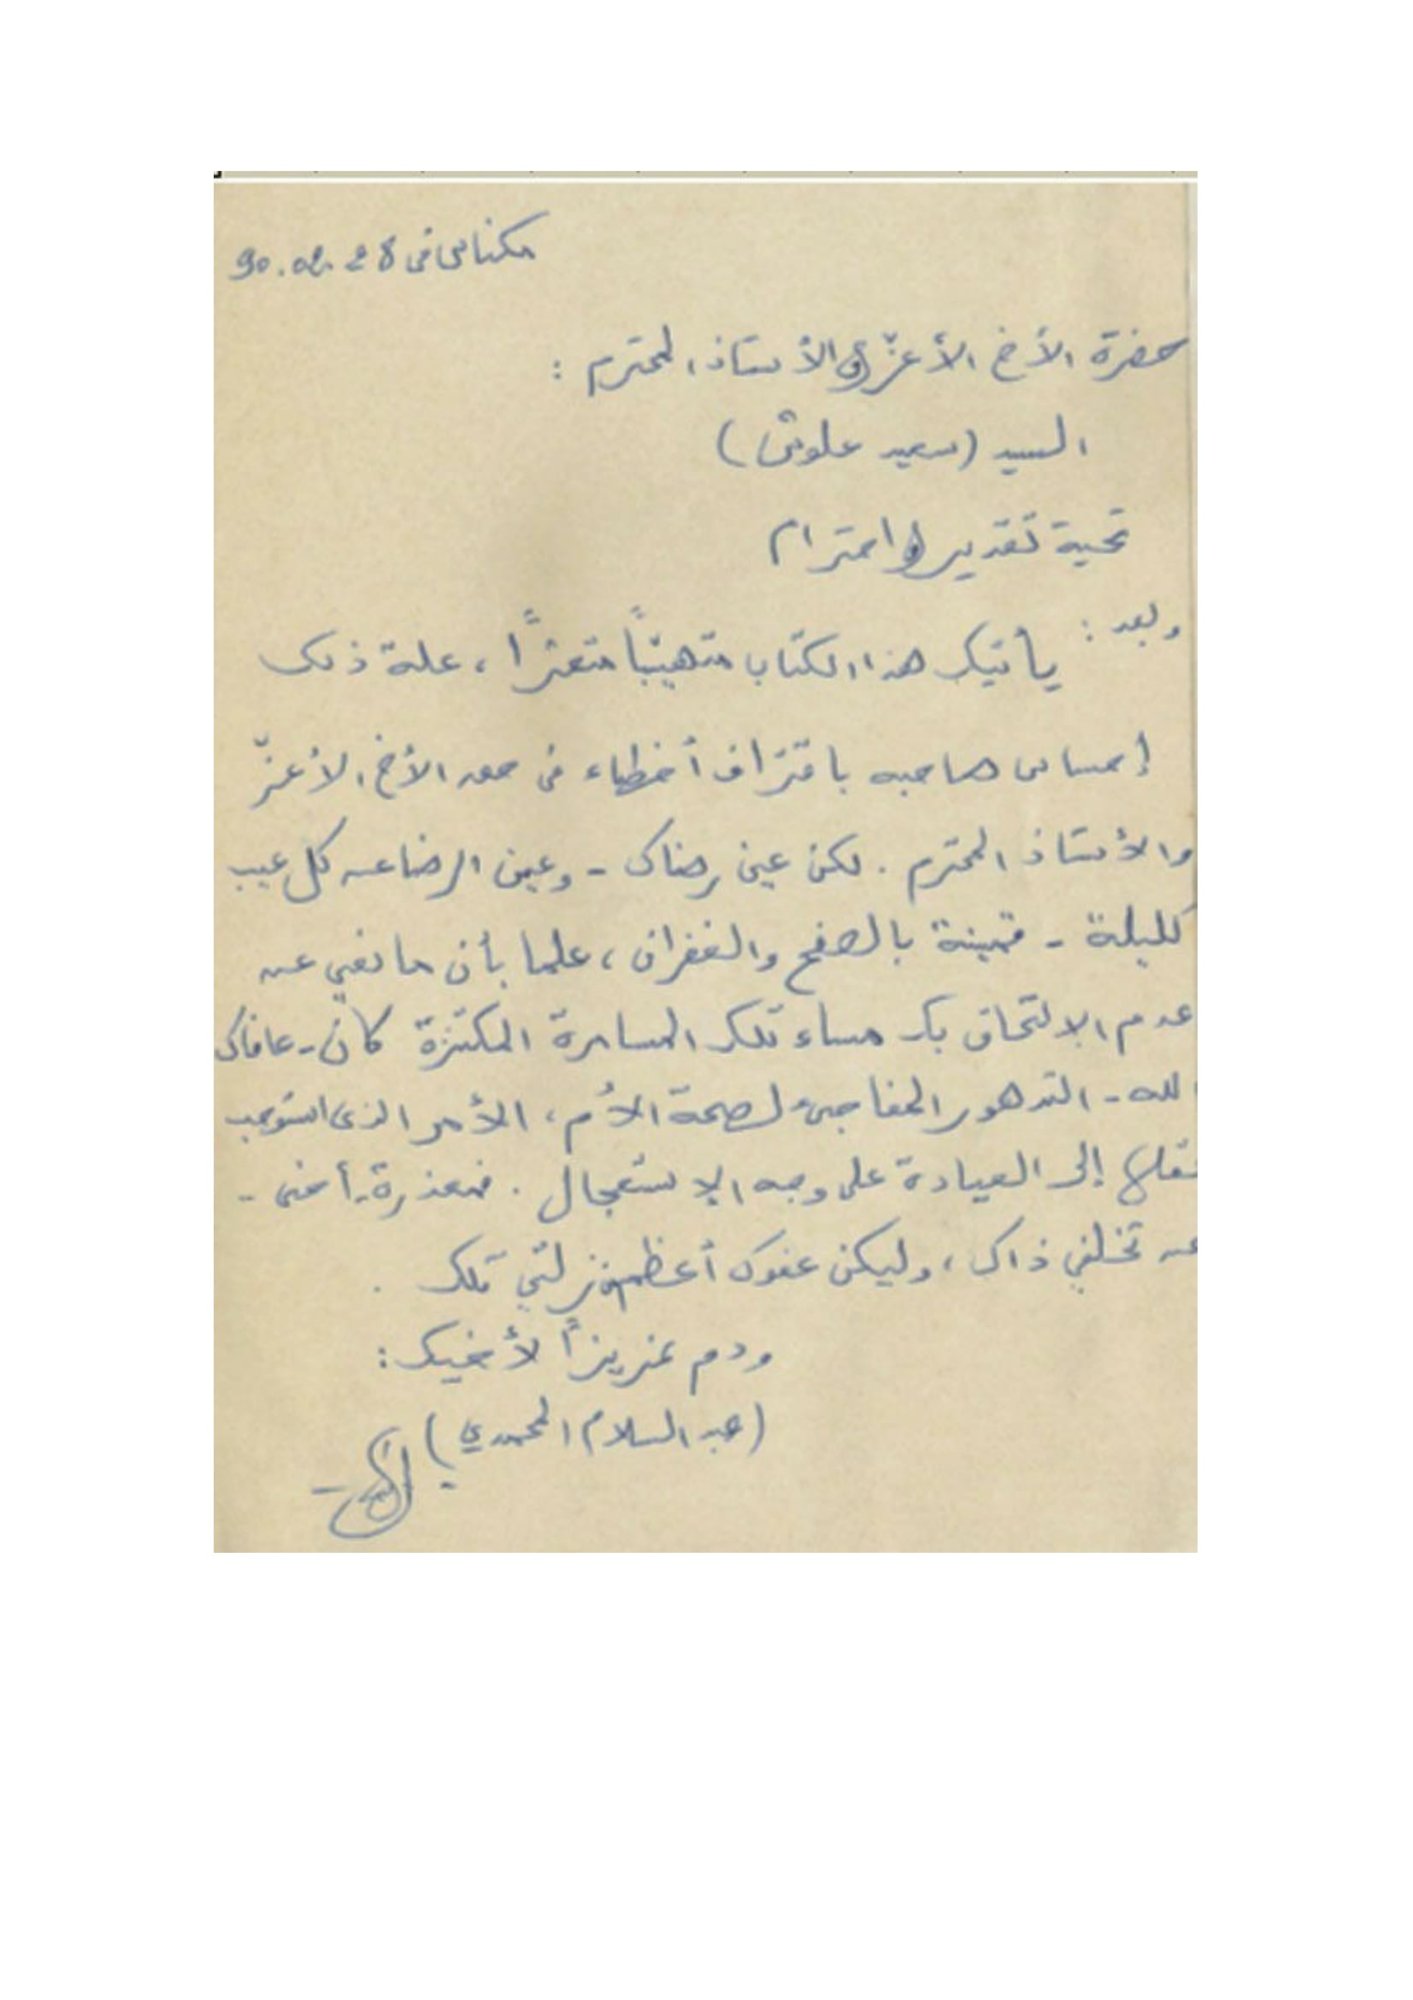 مكناس في 28 .02. 90
حضرة الأخ الأعزّ والأستاذ المحترم :
السيد (سعيد علوش)
تحية تقدير واحترام
وبعد :
يأتيك هذا الكتاب متهيّبًا متعثرًا ، علة ذلك
إحساس صاحبه باقتراف أخطاء في حق الأخ الأعزّ
والأستاذ المحترم . لكن عين رضاك - وعين الرضا عن كل عيب
كليلة - قمينة بالصفح والغفران ، علما بأن ما نعني عن
عدم الالتحاق بك مساء تلك المسامرة المكتنزة كان - عافاك
الله - التدهور المفاجئ لصحة الأم ، الأمر الذي استوجب
نقلها إلى العيادة على وجه الاستعجال . فمعذرة - أخي -
عن تخلفي ذاك ، وليكن عفوك أعظم من زلتي تلك .
ودم عزيزاً لأخيك :
(عبد السلام المحمدي)